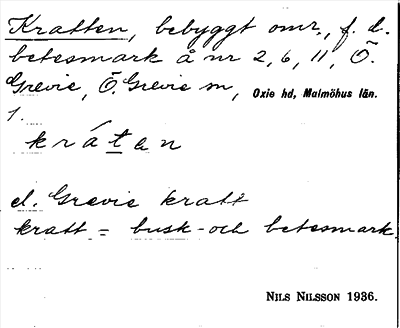 Kratten, bebyggt omr., f. d.
betesmark å nr 2, 6, 11, Ö.
Grevie, Ö. Grevie sn, Oxie hd, Malmöhus län.
1.
kráten
el. Grevie kratt
kratt = busk- och betesmark.
NILS NILSSON 1936.